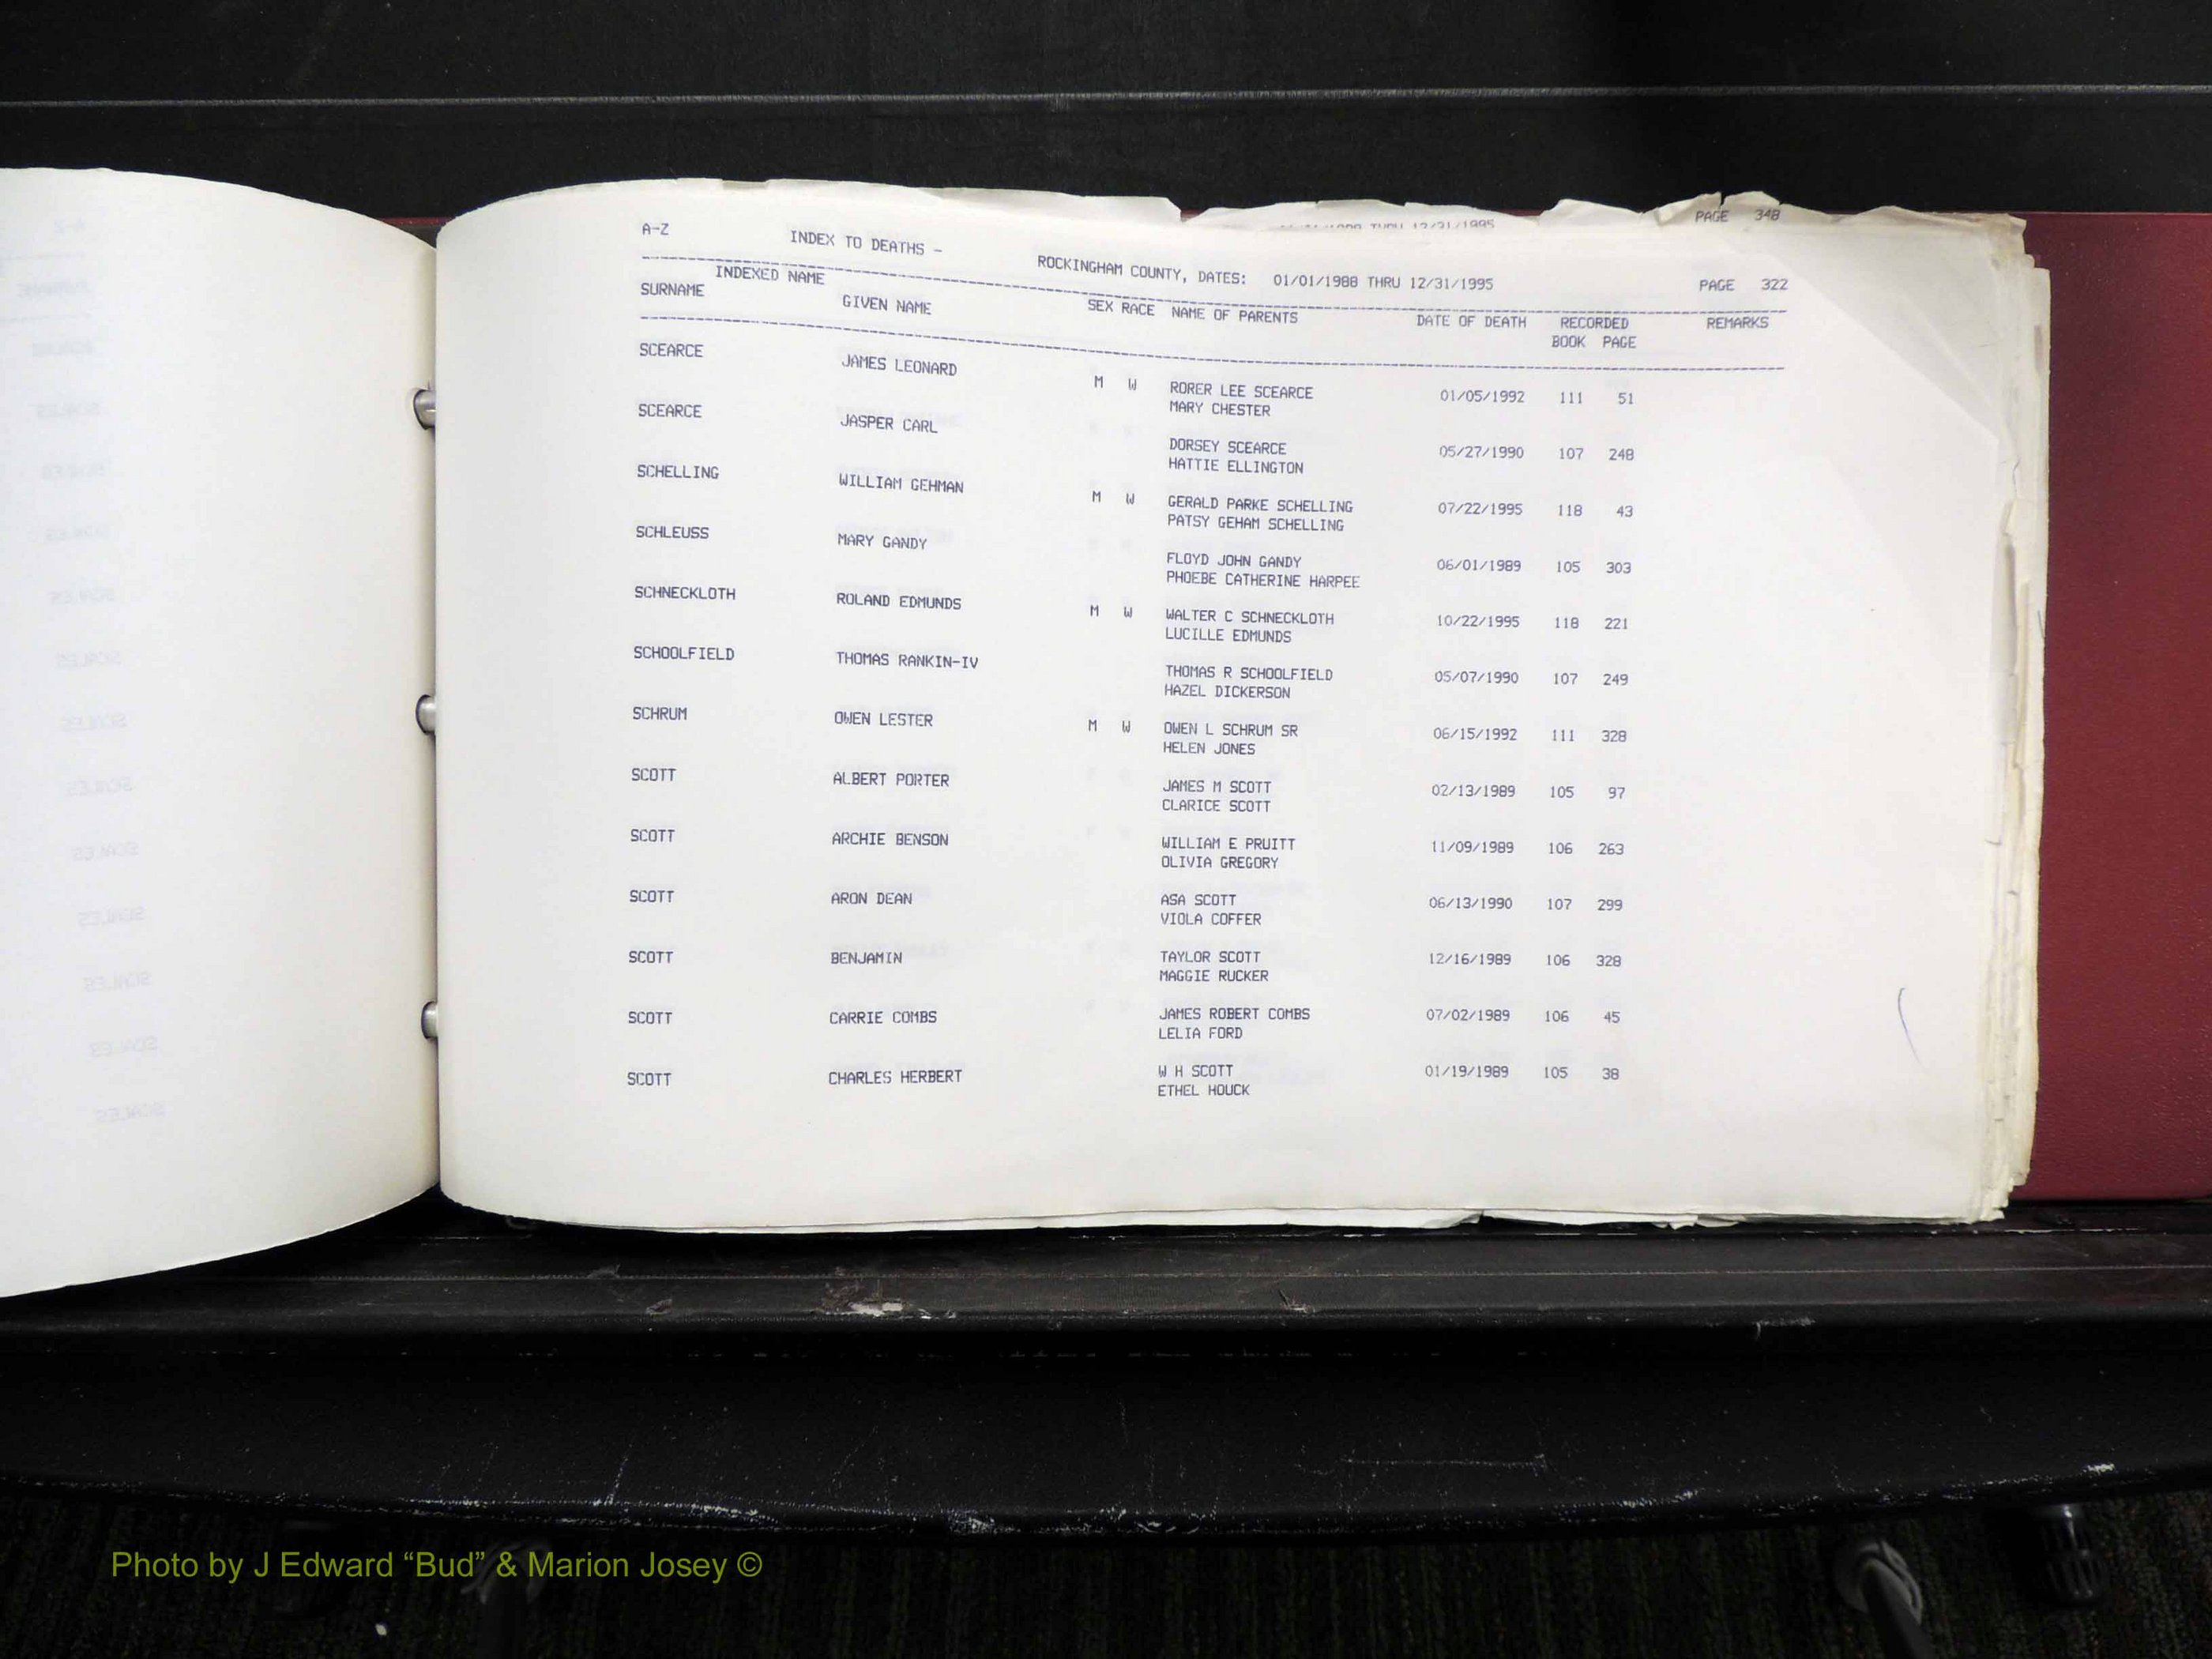 01/01/1988 THRU 12/31/1995 PAGE 348
A-Z INDEX TO DEATHS - ROCKINGHAM COUNTY, DATES: 01/01/1988 THRU 12/31/1995 PAGE 322
INDEXED NAME
SURNAME GIVEN NAME SEX RACE NAME OF PARENTS DATE OF DEATH RECORDED REMARKS
BOOK PAGE
SCEARCE JAMES LEONARD M W RORER LEE SCEARCE 01/05/1992 111 51
MARY CHESTER
SCEARCE JASPER CARL DORSEY SCEARCE 05/27/1990 107 248
HATTIE ELLINGTON
SCHELLING WILLIAM GEHMAN M W GERALD PARKE SCHELLING 07/22/1995 118 43
PATSY GEHAM SCHELLING
SCHLEUSS MARY GANDY FLOYD JOHN GANDY 06/01/1989 105 303
PHOEBE CATHERINE HARPEE
SCHNECKLOTH ROLAND EDMUNDS M W WALTER C SCHNECKLOTH 10/22/1995 118 221
LUCILLE EDMUNDS
SCHOOLFIELD THOMAS RANKIN-IV THOMAS R SCHOOLFIELD 05/07/1990 107 249
HAZEL DICKERSON
SCHRUM OWEN LESTER M W OWEN L SCHRUM SR 06/15/1992 111 328
HELEN JONES
SCOTT ALBERT PORTER JAMES M SCOTT 02/13/1989 105 97
CLARICE SCOTT
SCOTT ARCHIE BENSON WILLIAM E PRUITT 11/09/1989 106 263
OLIVIA GREGORY
SCOTT ARON DEAN ASA SCOTT 06/13/1990 107 299
VIOLA COFFER
SCOTT BENJAMIN TAYLOR SCOTT 12/16/1989 106 328
MAGGIE RUCKER
SCOTT CARRIE COMBS JAMES ROBERT COMBS 07/02/1989 106 45
LELIA FORD
SCOTT CHARLES HERBERT W H SCOTT 01/19/1989 105 38
ETHEL HOUCK
Photo by J Edward “Bud” & Marion Josey ©